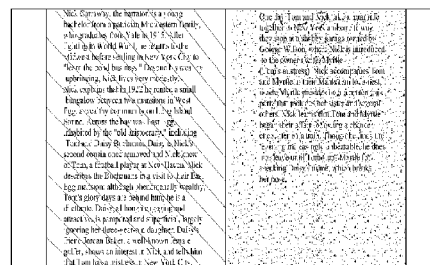 Nick Carraway, the narrator is a young
bachelor from a patrician Midwestern family,
who graduates from Yale in 1915. After
fighting in World War I, he returns to the
Midwest before settling in New York City to
"learn the bond business." Despite his wealthy
upbringing, Nick lives very modestly.
Nick explains that in 1922 he rented a small
bungalow between two mansions in West
Egg, a wealthy community on Long Island
Sound. Across the bay was East Egg,
inhabited by the "old aristocracy," including
Tom and Daisy Buchanan. Daisy is Nick's
second cousin once removed and Nick knew
of Tom, a football player at New Haven. Nick
describes the Buchanans in a visit to their East
Egg mansion: although phenomenally wealthy,
Tom's glory days are behind him; he is a
dilettante. Daisy, although engaging and
attractive, is pampered and superficial, largely
ignoring her three-year-old daughter. Daisy's
friend Jordan Baker, a well-known female
golfer, shows an interest in Nick, and tells him
that Tom has a mistress in New York City.
One day, Tom and Nick
together in New York
they stop at a shabby garage owned by
George Wilson, where Nick is introduced
to the owner's wife Myrtle
(Tom's mistress). Nick accompanies Tom
and Myrtle to their Manhattan love-nest,
where Myrtle presides
party that includes her sister and several
others. Nick
began their affair following a chance
encounter on a train. Though
evening
Myrtle
her nose.